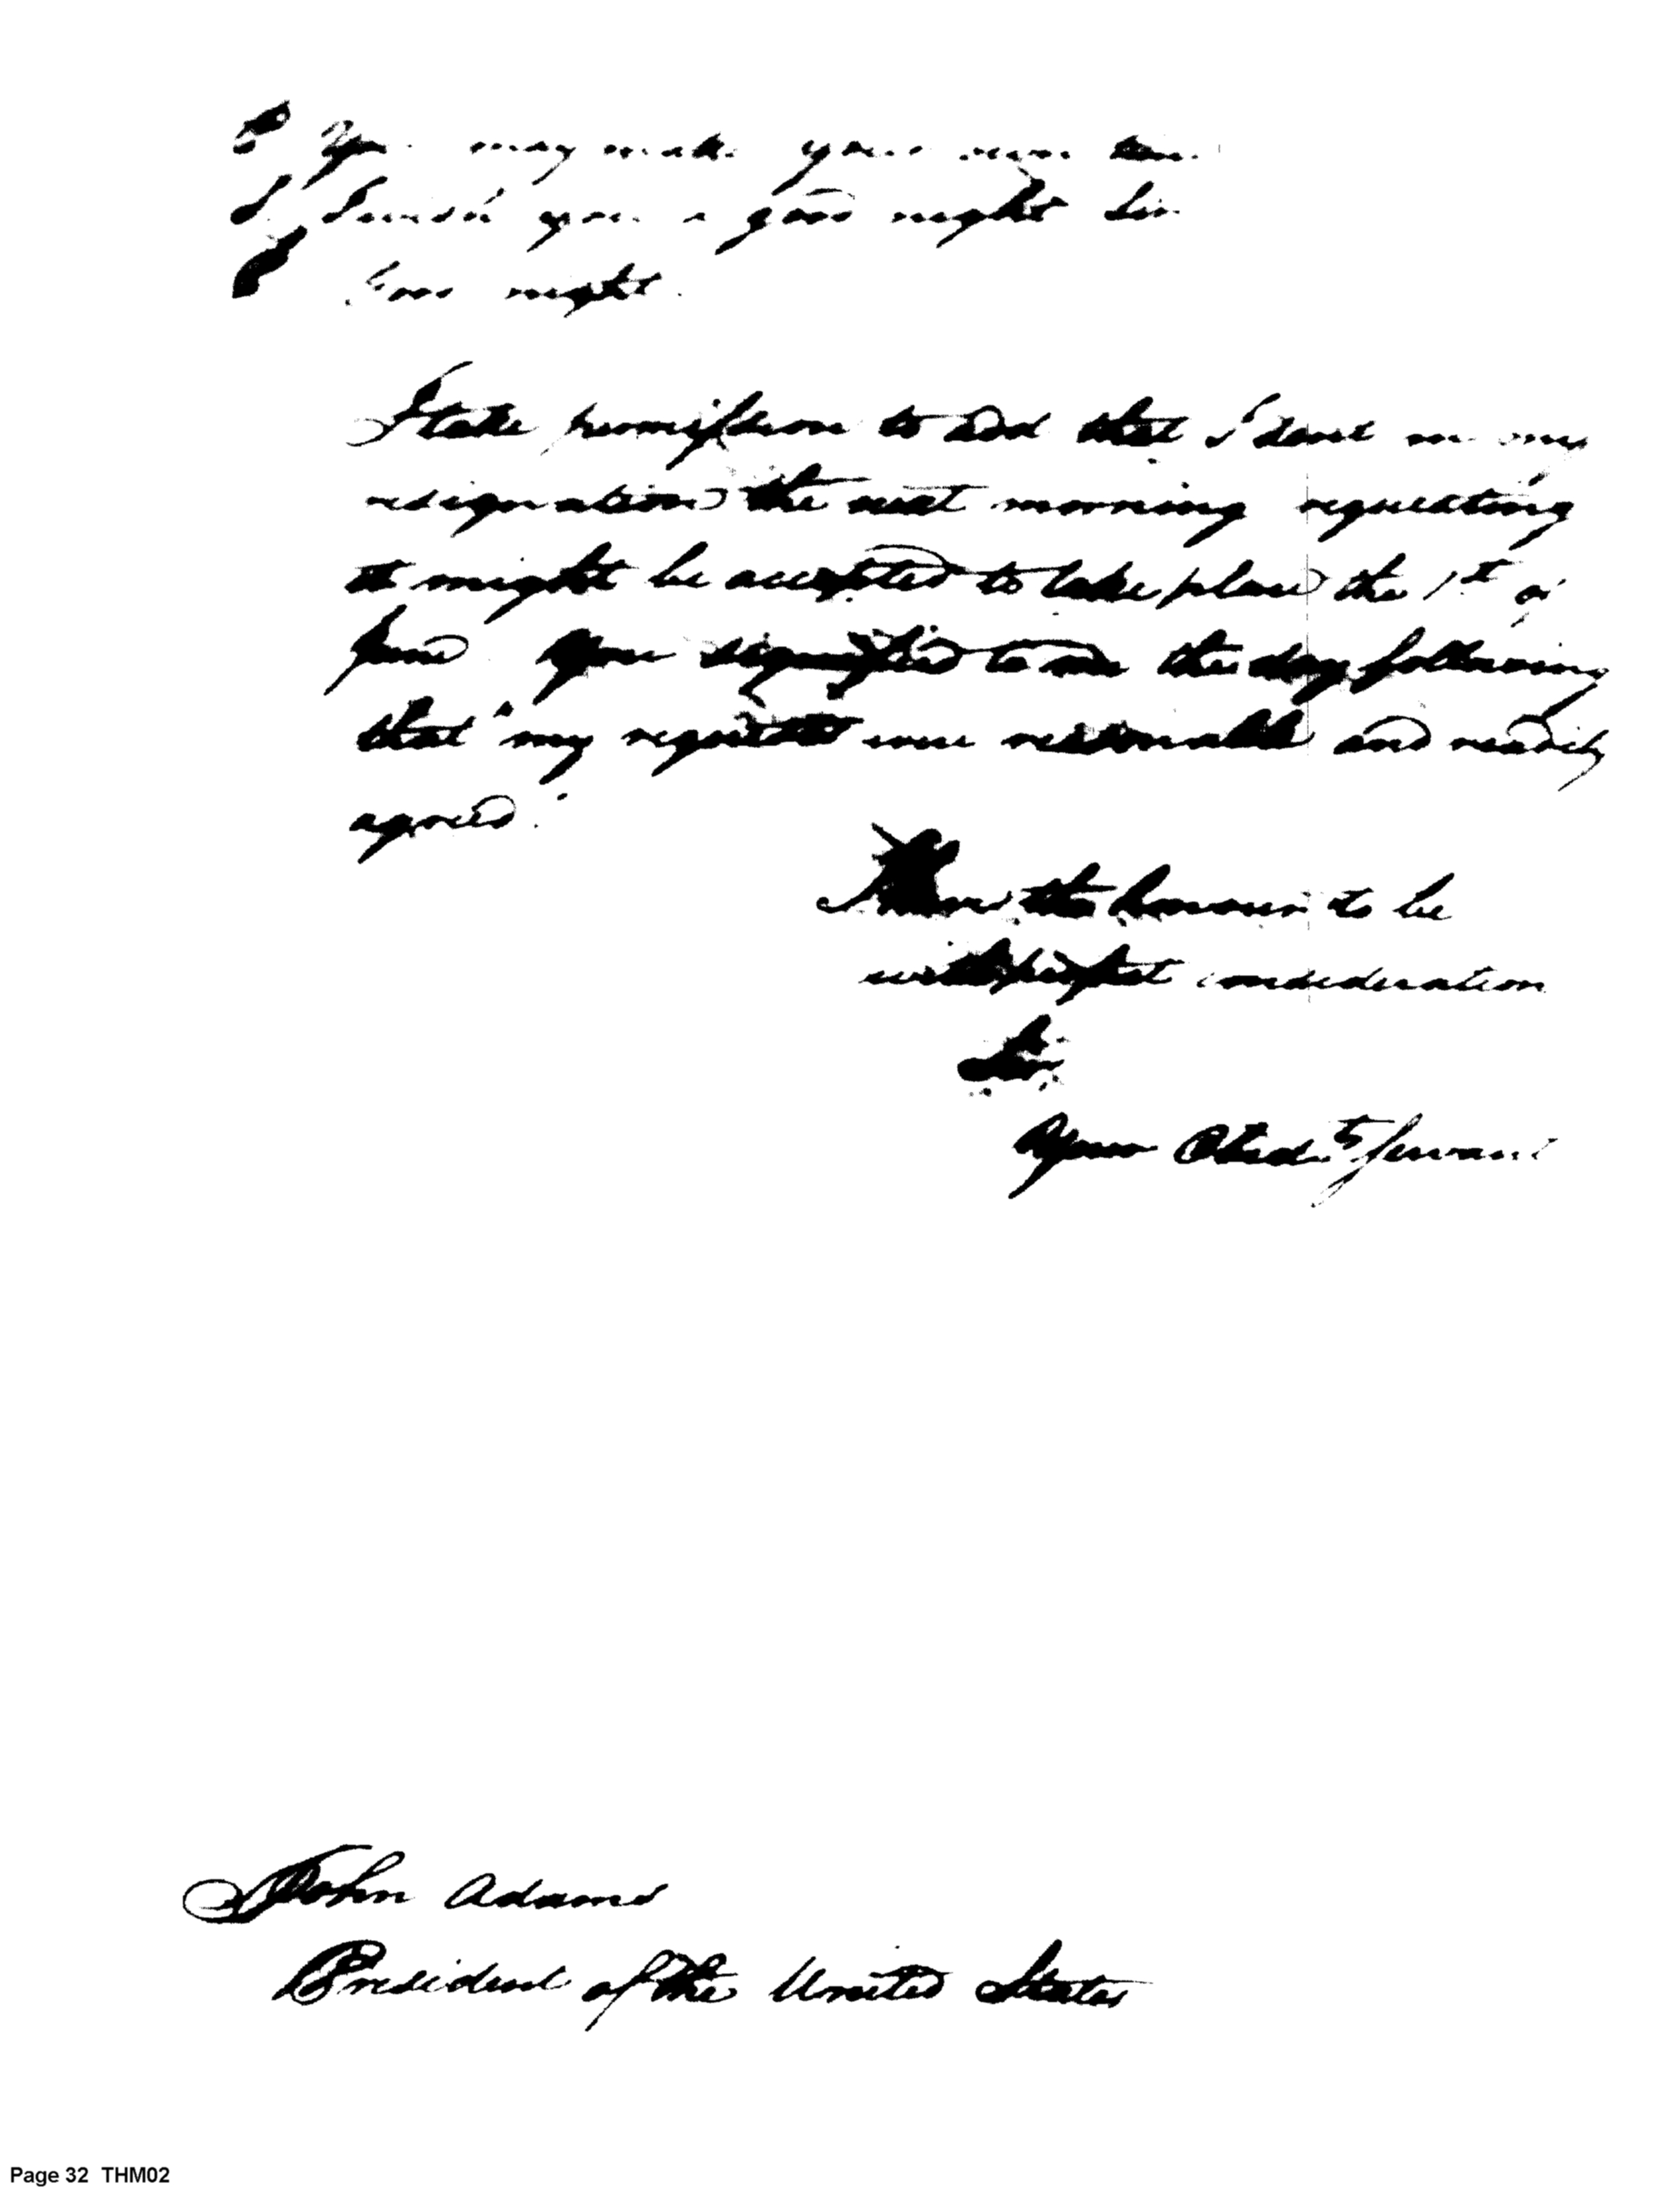 P You may make your own time.
I I wish you a good night Sir
P Good night.
I take permission to add that I sent in my
resignation the next morning requesting
it might be accepted to take place the 1st of
June You signified to me the day following
that my request was reasonable and readily
agreed.
I have the honour to be
with perfect consideration
Sir
Your Obedt Servant
John Adams
President of the United States
Page 32 THM02